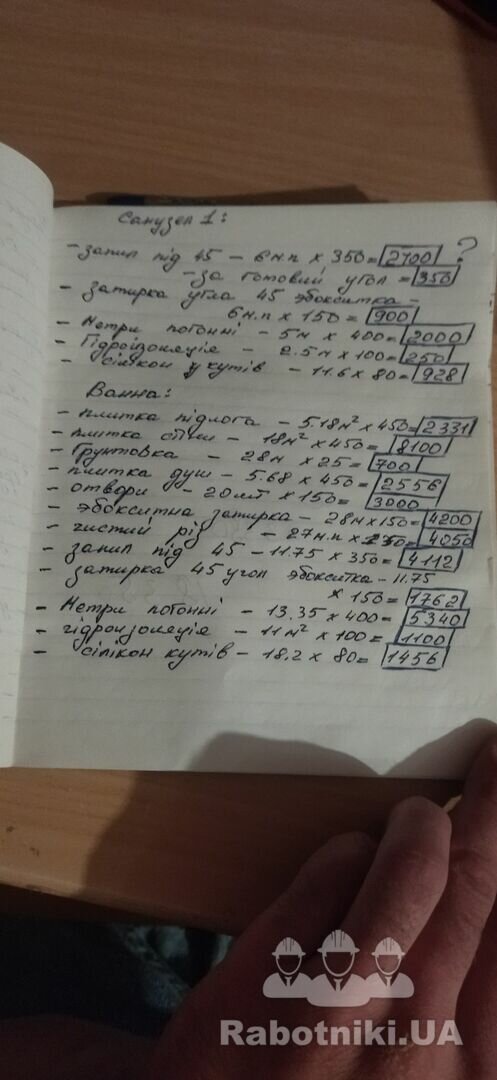 Санузел 1:
- запил під 45 - 6 м.п х 350= 2700 ?
- за готовий угол = 350
- затирка угла 45 эбокситка -
6 м.п х 150= 900
- Метри погонні - 5м х 400= 2000
- Гідроізоляція - 2.5м х 100= 250
- сілікон у кутів - 11.6 х 80= 928
Ванна:
- плитка підлога - 5.18м² х 450= 2331
- плитка стіни - 18м² х 450= 8100
- Грунтовка - 28м х 25= 700
- плитка душ - 5.68 х 450= 2556
- отвори - 20 шт х 150= 3000
- эбокситна затирка - 28м х 150= 4200
- чистий різ - 27м.п х 150= 4050
- запил під 45 - 11.75 х 350= 4112
- затирка 45 угол эбокситка - 11.75
х 150= 1762
- Метри погонні - 13.35 х 400= 5340
- гідроизоляція - 11м² х 100= 1100
- сілікон кутів - 18.2 х 80= 1456
Rabotniki.UA